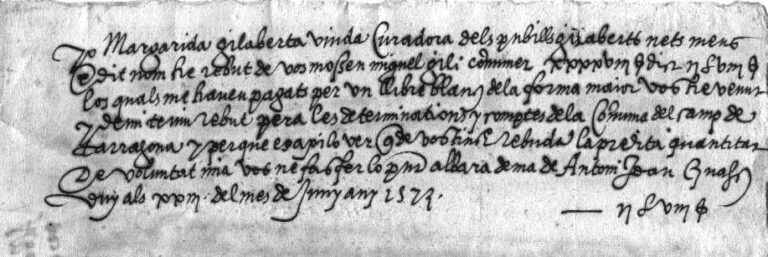 Jo Margarida gilaberta viuda Curadora dels pubills gilaberts nets meus
E dit nom he rebut de vos mossen miquel gili
los quals me haveu pagats per un llibre blanc de la forma maior vos he venut
y demi teniu rebut pera les determinations y comptes dela Comuna del camp de
Tarragona y perque es apilo ver de vos tinch rebuda la predita quantitat
De voluntat mia vos ne fas fer lo pnt albara de ma de Antoni Joan
vuy als xxiii. del mes de Juny any 1574.